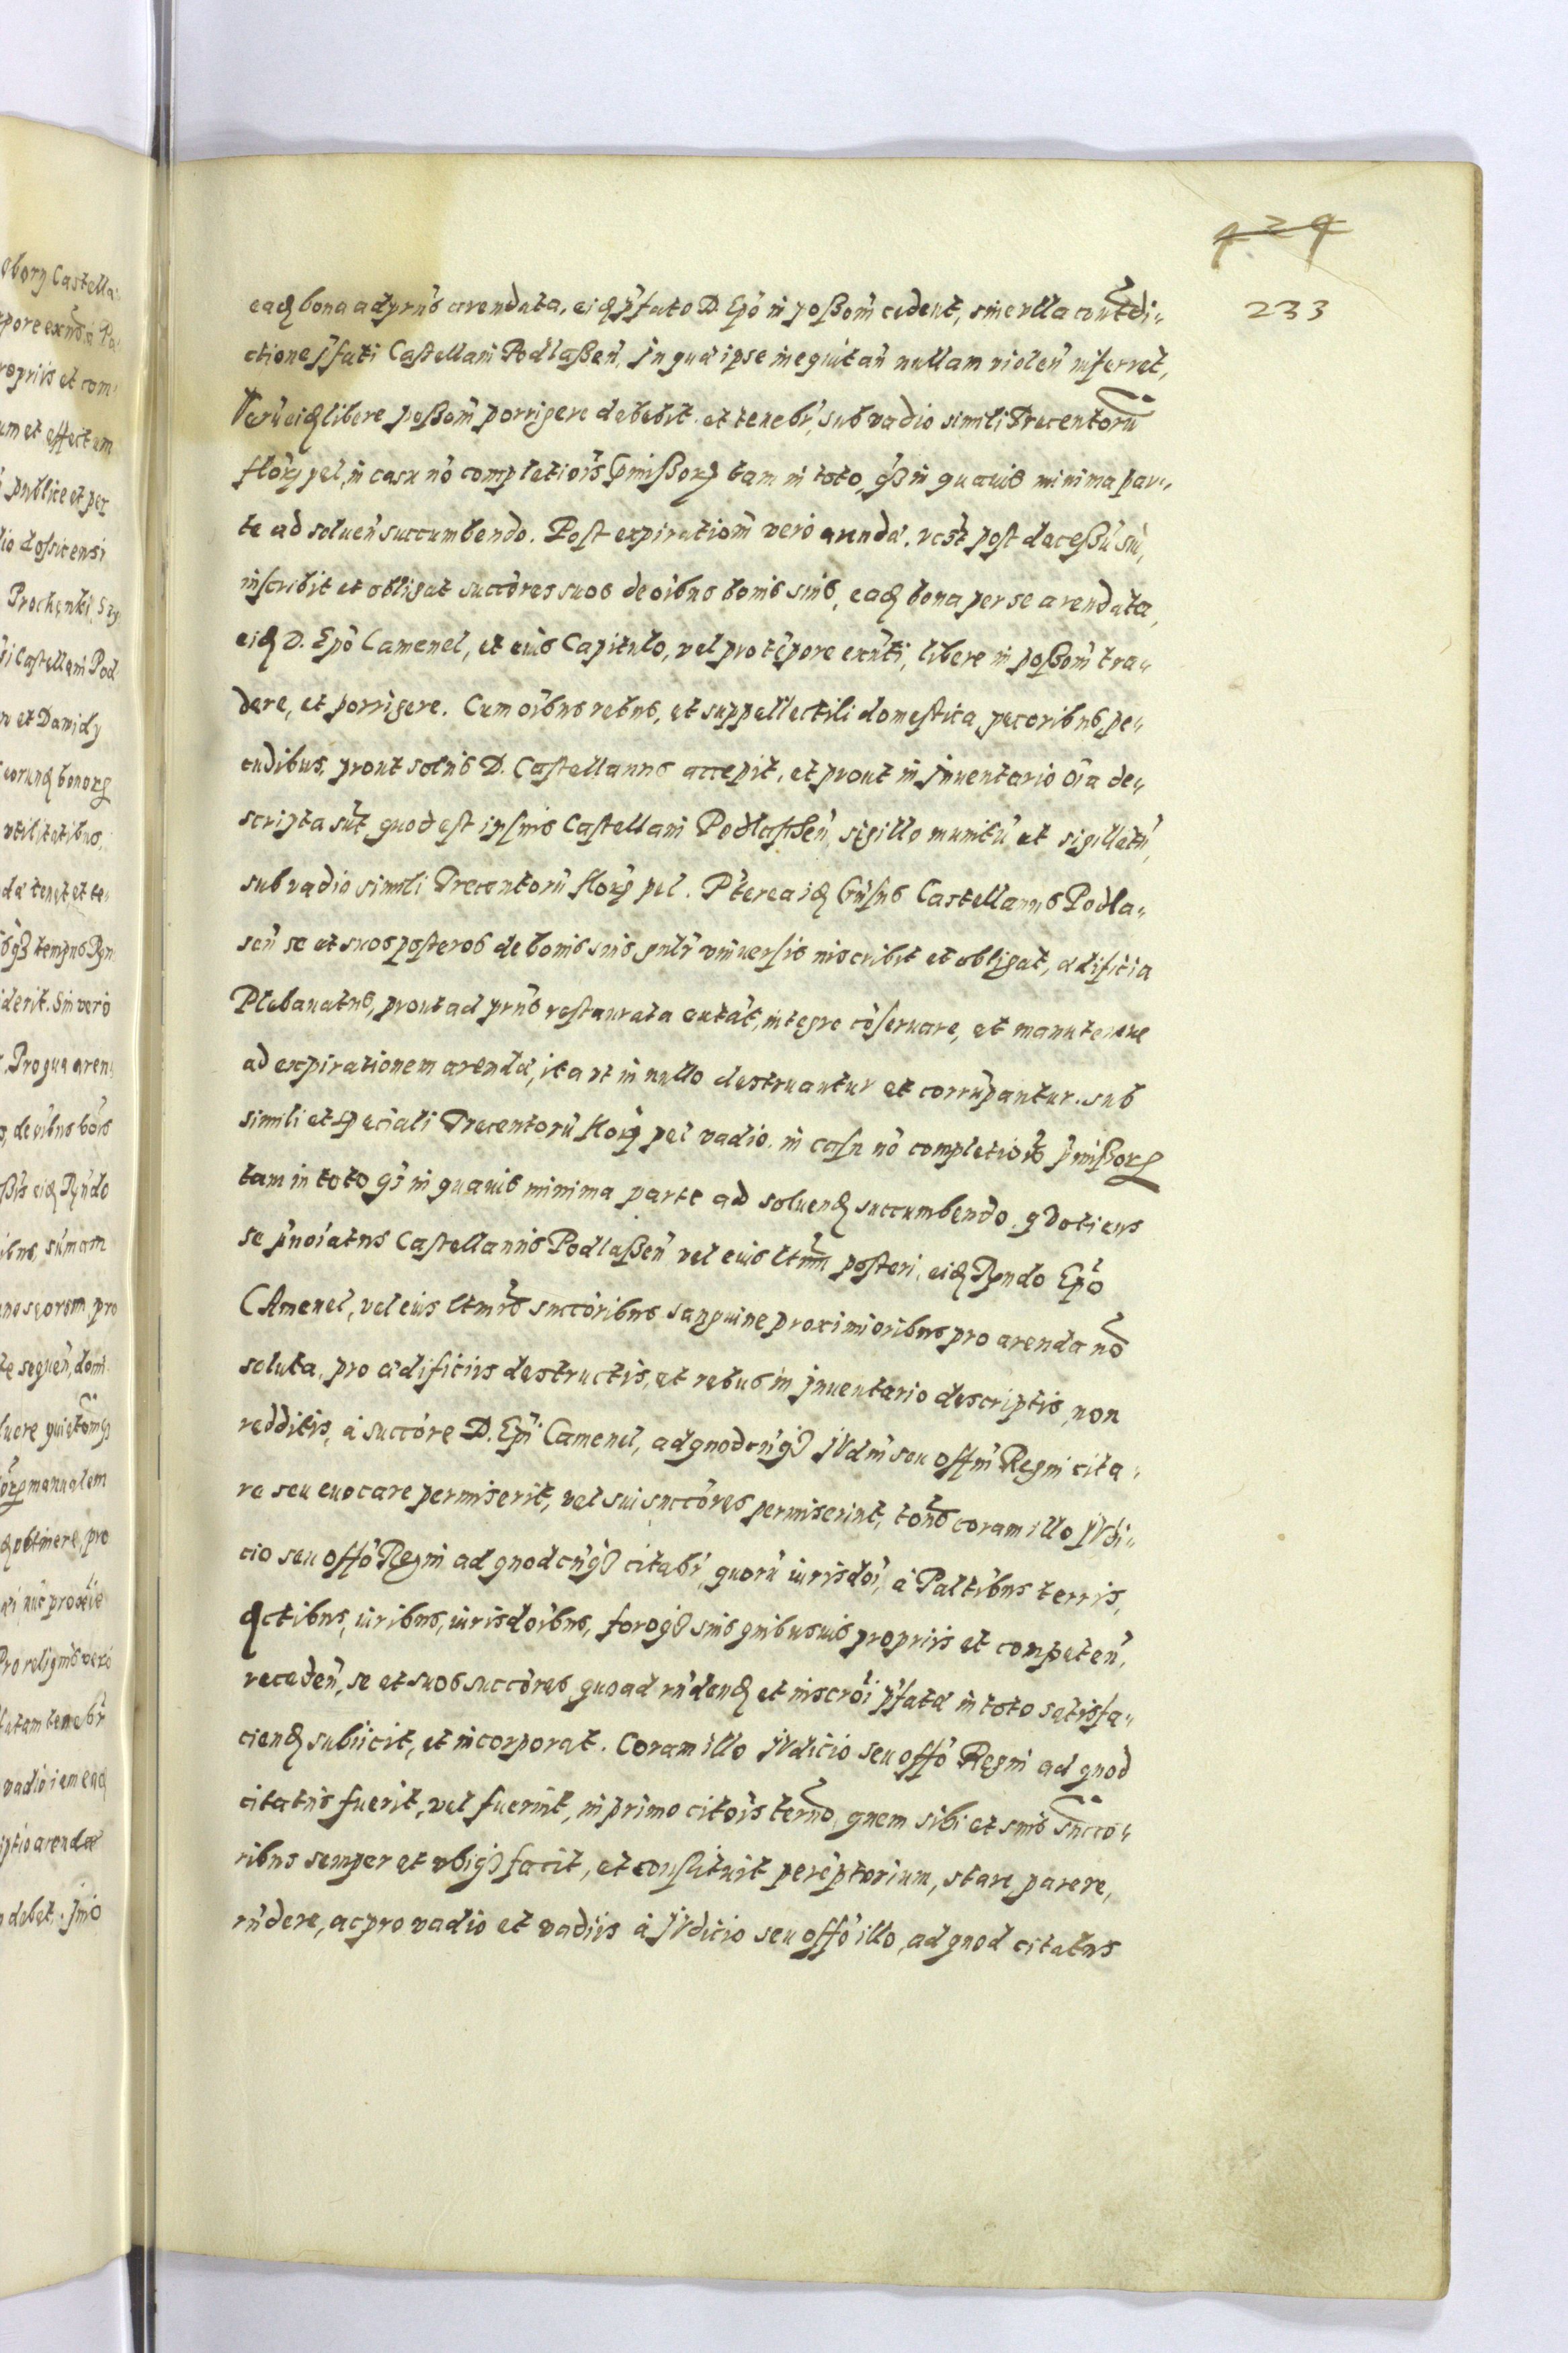 429
233
eadꝫ bona adprñs arendata, eidꝫ p̃fato D Ep̃o in poßom̃ cedent, sine ulla contrdi„
ctione p̃fati Castellani Podlaßeñ, In qua ipse inequitañ nullam violeñ inferret,
Verũ eidꝫ libere poßom̃ porrigere debebit et teneb̃r, sub vadio simili Trecentorũ
flor̃ꝝ pol, in casu nõ completiõis p̃mißorꝝ tam in toto, qꝫ in quauis minima par„
te ad solueñ succumbendo. Post expiratiom̃ vero arendæ, vɛ̃l post deceßũ sũ,
inscribit et obligat succ̃ores suos de oĩbus bonis suis, eadꝫ bona per se arendata,
eidꝫ D. Ep̃o Camenel, et eius Capitulo, vel pro tẽpore exñti, libere in poßom̃ tra„
dere, et porrigere. Cum oĩbus rebus, et suppellectili domestica, pecoribus, pe„
cudibus, prout solus D. Castellanus accepit, et prout in Inuentario oĩa de„
scripta sũt, quod est ipsius Castellani Podlasheñ sigillo munitũ et sigillatũ,
sub vadio simili Trecentorũ florꝝ pol. P̃terea idꝫ Gñsus Castellanus Podla„
señ se et suos posteros de bonis suis gñlr̃ vniuersis inscribit et obligat, ædificia
Plebanatus, prout ad prñs restaurata extãt, integre cõseruare, et manutenere
ad expirationem arendæ, ita vt in nullo destruantur et corrũpantur. sub
simili et speciali Trecentorũ florꝝ pol vadio. in casu nõ completiõis p̃mißorꝝ
tam in toto qꝫ in quauis minima parte ad soluendꝫ succumbendo. qdotiens
se p̃noĩatus Castellanus Podlaßeñ vel eius ltm̃i posteri, eidꝫ Rñdo Ep̃o
CAmenel, vel eius ltm̃is succ̃oribus sanguine proximioribus pro arenda nõ
soluta, pro ædificiis destructis, et rebus in Inuentario descriptis, non
redditis, à succ̃ore D. Ep̃i Camenel, ad quodcũqꝫ IVdm̃ seu offm̃ Regni cita„
re seu euocare permiserit, vel sui succ̃ores permiserint, tot̃s coram illo IVdi„
cio seu offõ Regni ad quodcũqꝫ citab̃r, quorũ iurisdoĩ, à Paltĩbus terris,
dꝫctibus, iuribus, iurisdoĩbus, foroqꝫ suis quibusuis propriis et competeñ,
recedeñ, se et suos succ̃ores quoad rñdendꝫ et inscroĩ p̃fatæ in toto satisfa„
ciendꝫ subiicit, et incorporat. Coram illo IVdicio seu offõ Regni ad quod
citatus fuerit, vel fuerint, in primo citõis termño, quem sibi et suis succo„
ribus semper et vbiqꝫ facit, et constituit perẽptorium, stare parere,
rñdere, ac pro vadio et vadiis à IVdicio seu offõ illo, ad quod citatus